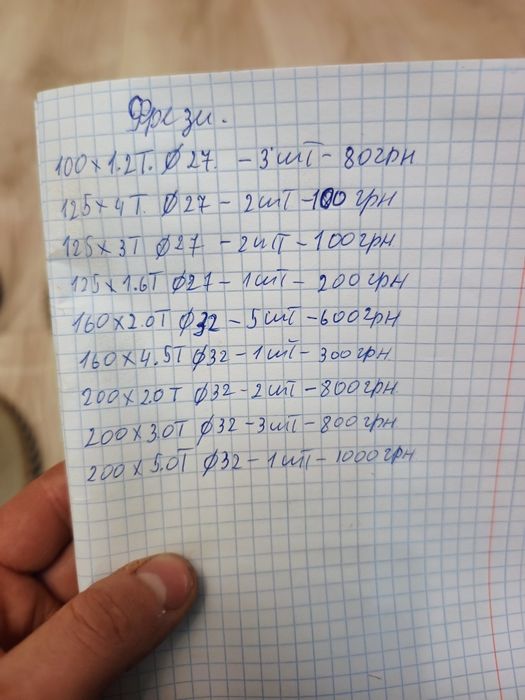 Фрези.
100×1.2Т. Ø27. – 3шт – 80грн
125×4Т. Ø27 – 2шт – 100грн
125×3Т Ø27 – 2шт – 100грн
125×1.6Т Ø27 – 1шт – 200грн
160×2.0Т Ø32 – 5шт – 600грн
160×4.5Т Ø32 – 1шт – 300грн
200×2.0Т Ø32 – 2шт – 800грн
200×3.0Т Ø32 – 3шт – 800грн
200×5.0Т Ø32 – 1шт – 1000грн